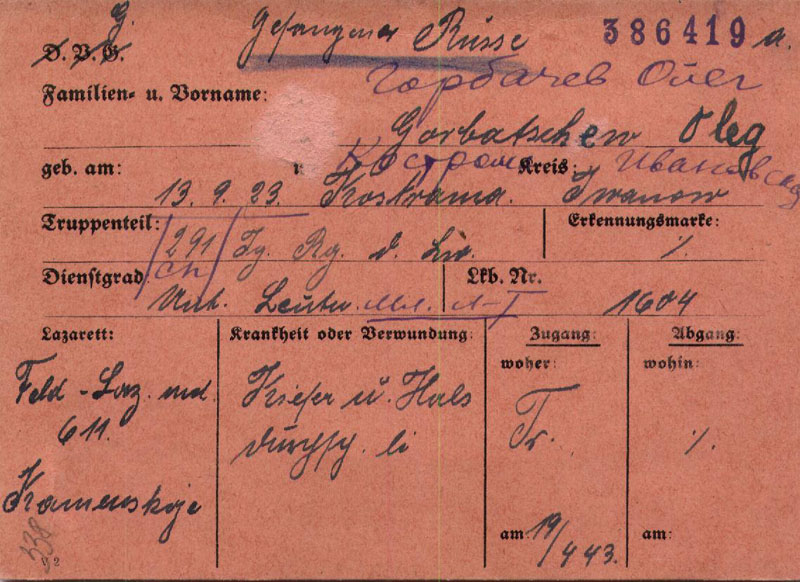 G.
Gefangener Russe 386419 a.
D. V. G.
Горбачев Олег
Familien- u. Vorname:
Gorbatschew Oleg
geb. am: Костром Kreis: Ивановская
13. 9. 23. Kostrama. Iwanow
Truppenteil: Erkennungsmarke:
291 Jg. Rg. d. Liv. ./.
Dienstgrad сп Lkb. Nr.
Unt. Leutn. мл. л-т 1604
Lazarett: Krankheit oder Verwundung: Zugang: Abgang:
woher: wohin:
Feld-Laz. mot. Kiefer u. Hals Tr. ./.
611. durchsch. li
Kamenskoje
338
am: 19/4 43. am:
V 2